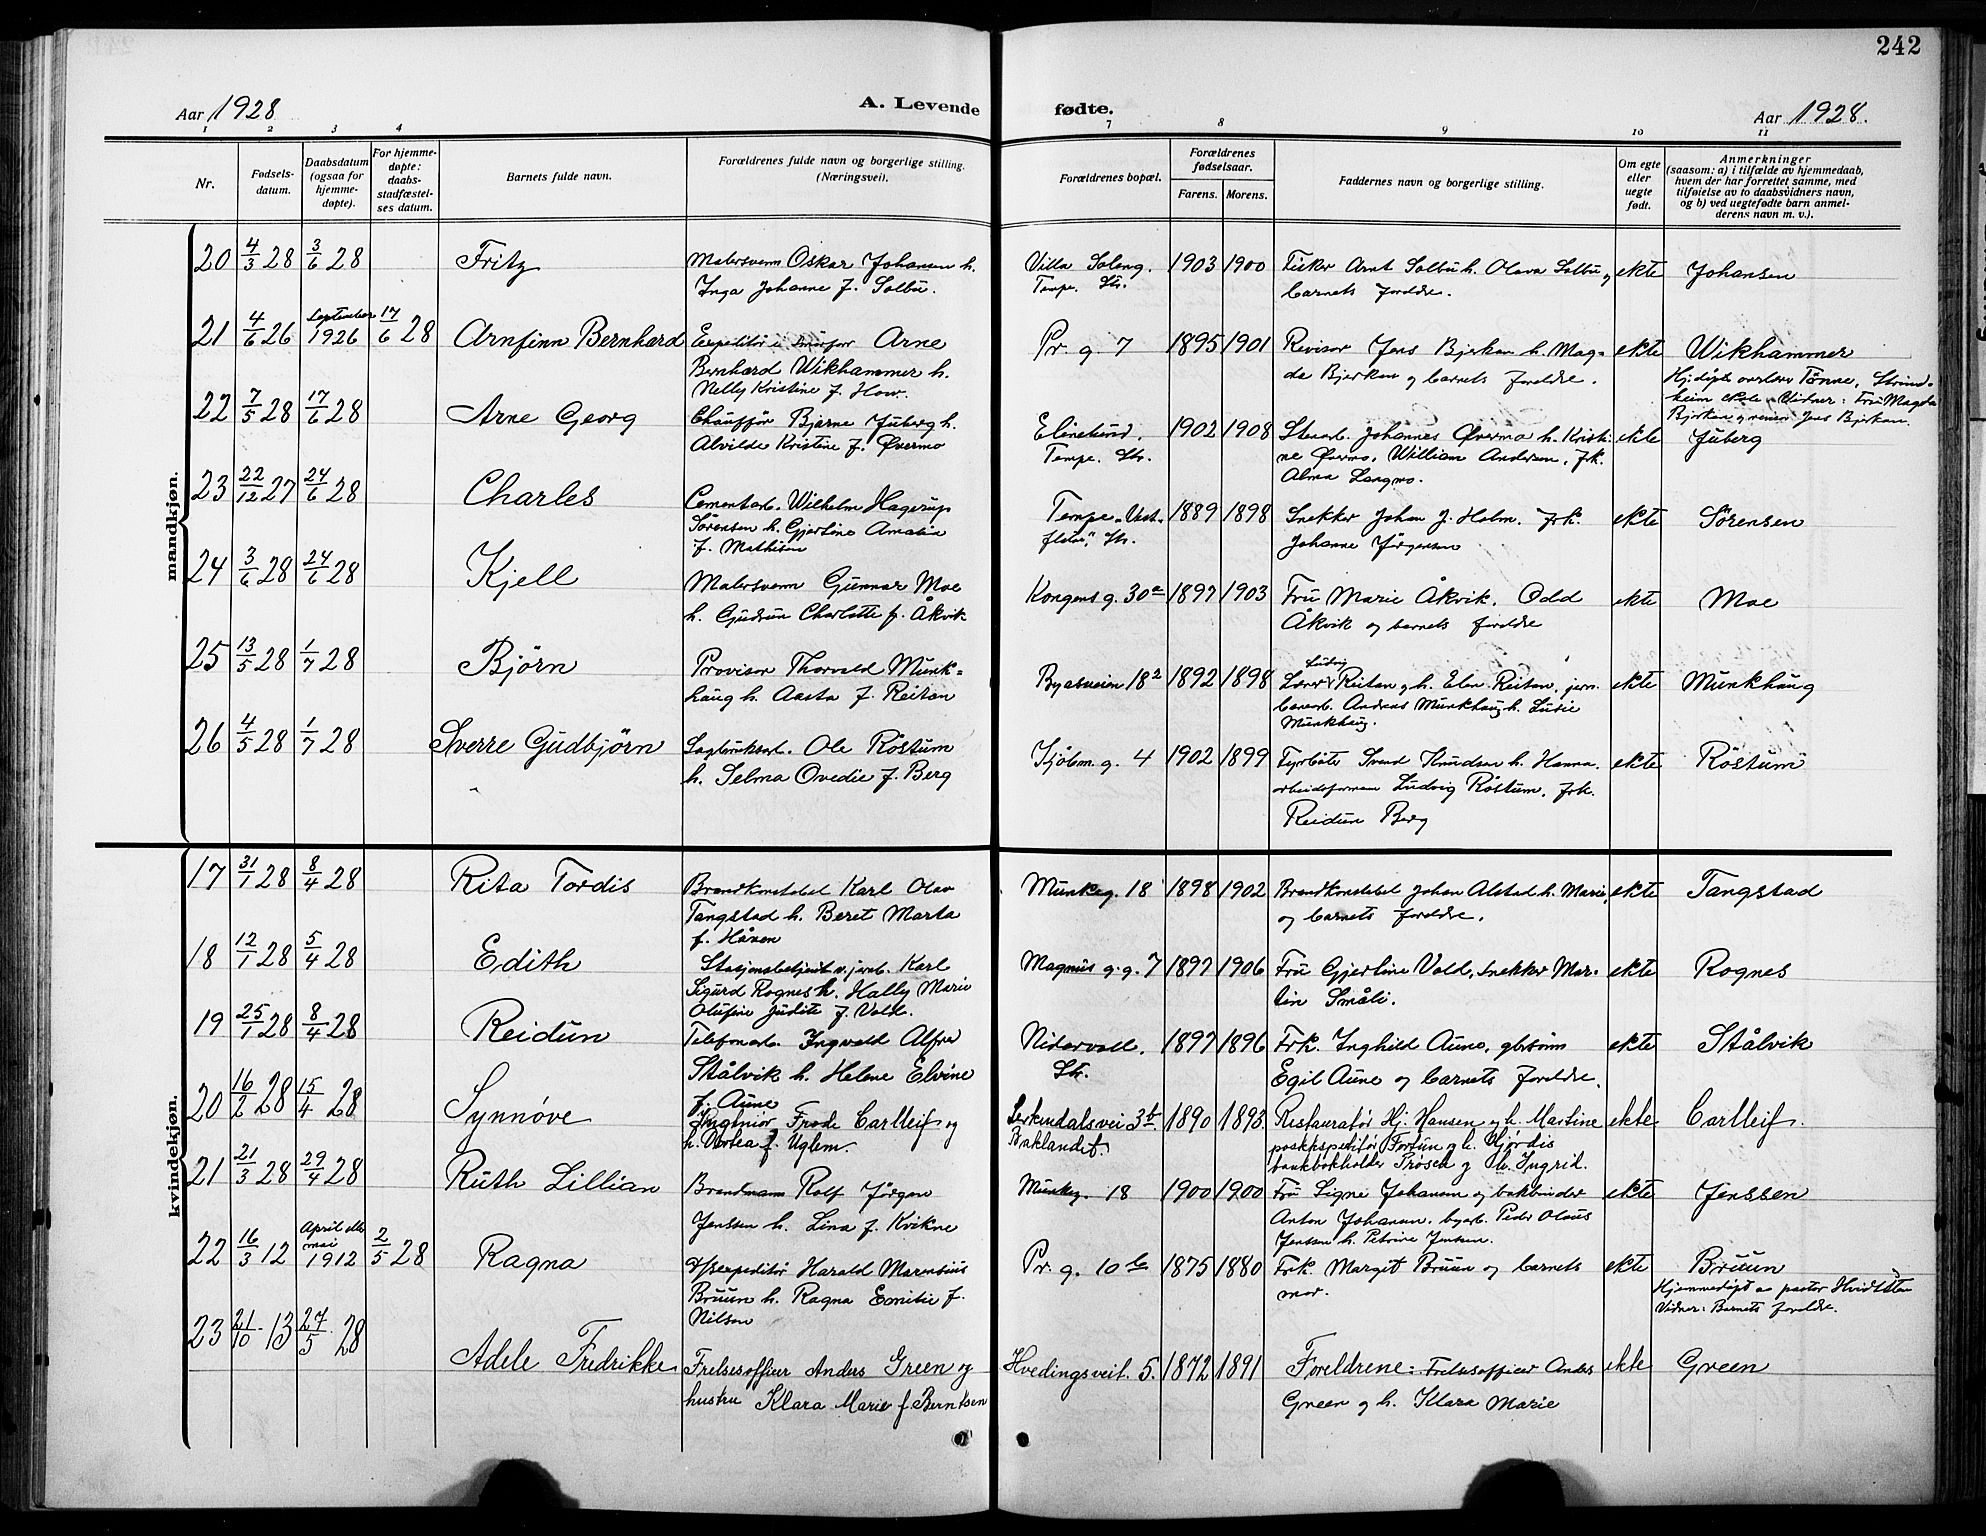 242
Aar 1928
A. Levende
fødte.
Aar 1928.
1 2 3 4 7 8 9 10 11
Nr.
Fødsels-
datum.
Daabsdatum
(ogsaa for
hjemme-
døpte).
For hjemme-
døpte:
daabs-
stadfæstel-
ses datum.
Barnets fulde navn.
Forældrenes fulde navn og borgerlige stilling.
(Næringsvei).
Forældrenes bopæl.
Forældrenes
fødselsaar.
Farens. Morens.
Faddernes navn og borgerlige stilling.
Om egte
eller
uegte
født.
Anmerkninger
(saasom: a) i tilfælde av hjemmedaab,
hvem der har forrettet samme, med
tilføielse av to daabsvidners navn,
og b) ved uegtefødte barn anmel-
derens navn m. v.).
mandkjøn.
20 4/3 28 3/6 28 Fritz
Malersvenn Oskar Johansen h.
Inga Johanne f. Solbu.
Villa Soleng.
Tempe. Str.
1903 1900
Fisker Arnt Solbu h. Olava Solbu og
barnets foreldre.
ekte Johansen
21 4/6 26 September 1926 17/6 28 Arnfinn Bernhard
Expeditør i Arne
Bernhard Wikhammer h.
Nelly Kristine f. Hove.
Pr. g. 7
1895 1901
Revisor Jens Bjerkan h. Mag-
da Bjerkan og barnets foreldre.
ekte Wikhammer
Hj.døpt overlærer Tønne, Strind-
heim skole. Vidner: Fru Magda
Bjerkan og revisor Jens Bjerkan.
22 7/5 28 17/6 28 Arne Georg
Chauffør Bjarne Juberg h.
Alvilde Kristine f. Øvermo
Elinelund.
Tempe. Str.
1902 1908
Stenarb. Johannes Øvermo h. Kristi-
ne Øvermo, William Andersen, frk.
Alma Langmo.
ekte Juberg
23 22/12 27 24/6 28 Charles
Cementarb. Wilhelm Hagerup
Sørensen h. Gjertine Amalia
f. Mathisen
Tempe "Vest-
Str.
1889 1898
Snekker Johan J. Holm. Frk.
Johanne Jørgensen
ekte Sørensen
24 3/6 28 24/6 28 Kjell
Malersvenn Gunnar Moe
h. Gudrun Charlotte f. Åkvik
Kongens g. 30
1897 1903
Fru Marie Åkvik. Odd
Åkvik og barnets foreldre
ekte Moe
25 13/5 28 1/7 28 Bjørn
Provisor Thorvald Munk-
haug h. Aasta f. Reitan
Byåsveien 18
1892 1898
Ludvig
Lærer Reitan og h. Elen Reitan, jern-
banearb. Andreas Munkhaug h. Lusie
Munkhaug.
ekte Munkhaug
26 4/5 28 1/7 28 Sverre Gudbjørn
Sagbruksarb. Ole Røstum
h. Selma Ovedie f. Berg
Sjøbm. g. 4
1902 1899
Fyrbøter Svend Knudsen h. Hanna.
arbeidsformann Ludvig Røstum, frk.
Reidun Berg
ekte Røstum
kvindekjøn.
17 31/1 28 8/4 28 Rita Tordis
Brandkonstabel Karl Olav
Tangstad h. Beret Marta
f. Håven
Munkeg. 18
1898 1902
Brandkonstabel Johan Alstad h. Marie,
og barnets foreldre.
ekte Tangstad
18 12/1 28 5/4 28 Edith
Stasjonsbetjent v. jernb. Karl
Sigurd Rognes h. Hally Marie
Olufine Judite f. Vold.
Magnus g. g. 7
1897 1906
Fru Gjertine Vold, snekker Mar-
tin Småli.
ekte Rognes
19 25/1 28 8/4 28 Reidun
Telefonarb. Ingvald Alfred
Stålvik h. Helene Elvine
f. Aune
Nidarvoll.
Str.
1897 1896
Frk. Inghild Aune, gbrsønn
Egil Aune og barnets foreldre.
ekte Stålvik
20 16/2 28 15/4 28 Synnøve
Ingeniør Frode Carlleif og
h. Dortea f. Uglem.
Lerkendalsvei 3b
Baklandet.
1890 1893
Restauratør Hj. Hansen og h. Martine
postekspeditør Fortun og h. Hjørdis
bankbokholder Trøsch og h. Ingrid.
ekte Carlleif.
21 21/3 28 29/4 28 Ruth Lillian
Brandmann Rolf Jørgen
Jenssen h. Lina f. Kvikne
Munkeg. 18
1900 1900
Fru Signe Johansen og bokbinder
Anton Johansen, byarb. Peder Olaus
Jentsen h. Petrine Jentsen.
ekte Jenssen
22 16/3 12 April eller mai 1912 2/5 28 Ragna
Harald Marensius
Bruun h. Ragna Eomitie f.
Nilsen
Pr. g. 10
1875 1880
Frk. Margit Bruun og barnets
mor.
ekte Bruun
Hjemmedøpt av pastor Hvidtsten
Vidner: Barnets foreldre.
23 21/10 13 27/5 28 Adele Fredrikke
Frelsesofficer Anders Green og
hustru Klara Marie f. Berntsen
Hvedingsveit. 5.
1872 1891
Foreldrene: Frelsesofficer Anders
Green og h. Klara Marie
ekte Green